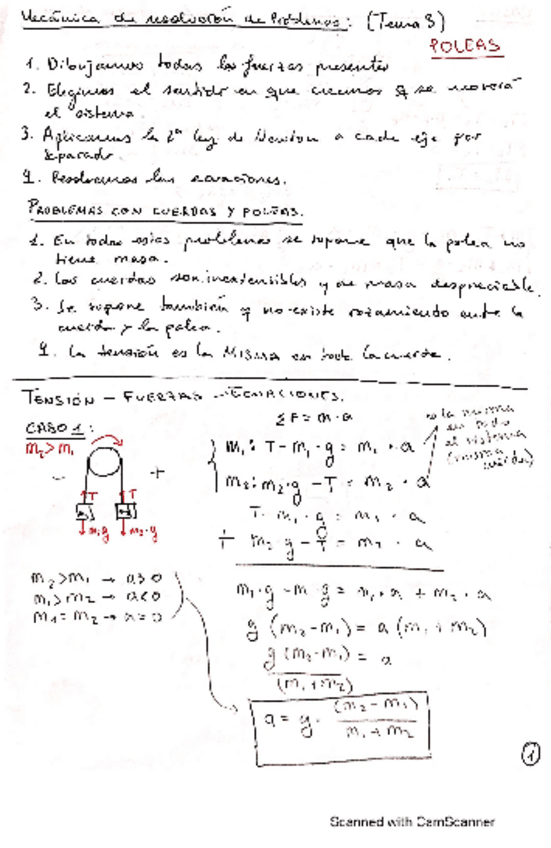 Mecánica de resolución de Problemas: (Tema 3)
POLEAS
1. Dibujamos todas las fuerzas presentes
2. Elegimos el sentido en que creemos q se moverá
el sistema.
3. Aplicamos la 2ª ley de Newton a cada eje por
separado.
4. Resolvemos las ecuaciones.
PROBLEMAS CON CUERDAS Y POLEAS.
1. En todos estos problemas se supone que la polea no
tiene masa.
2. Las cuerdas son inextensibles y de masa despreciable.
3. Se supone también q no existe rozamiento entre la
cuerda y la polea.
4. La tensión es la MISMA en toda la cuerda.
TENSIÓN - FUERZAS - ECUACIONES.
CASO 1:
m₂>m₁
- +
T T
m₁·g m₂·g
ΣF = m·a
m₁: T - m₁·g = m₁·a
m₂: m₂·g - T = m₂·a
→ la misma
en todo
el sistema
(misma
cuerda)
T - m₁·g = m₁·a
+ m₂·g - T = m₂·a
m₂>m₁ → a>0
m₁>m₂ → a<0
m₁=m₂ → a=0
g (m₂-m₁) = a (m₁+m₂)
g (m₂-m₁) / (m₁+m₂) = a
a = g · (m₂-m₁) / m₁+m₂
1
Scanned with CamScanner